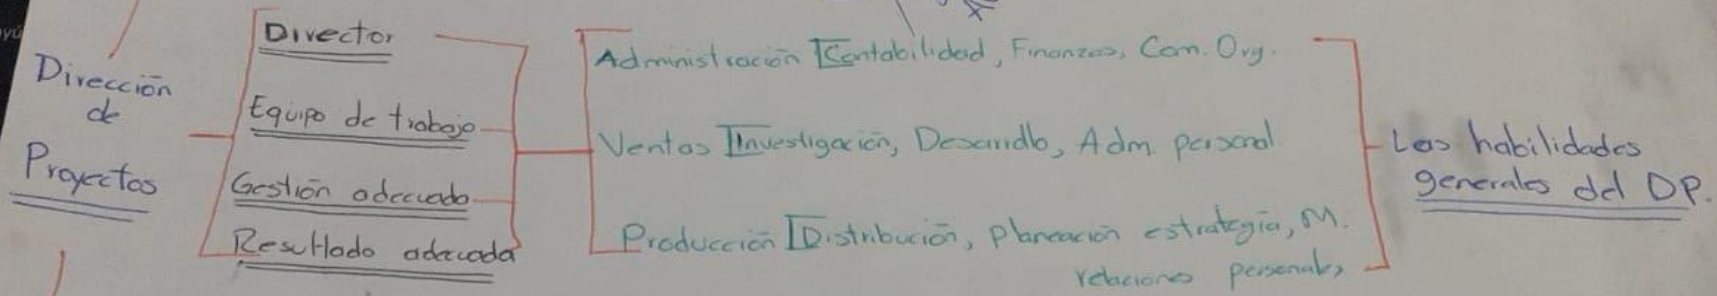 Dirección
de
Proyectos
Director
Equipo de trabajo
Gestión adecuada
Resultado adecuada
Administración Contabilidad, Finanzas, Com. Org.
Ventas Investigación, Desarrollo, Adm. personal
Producción Distribución, planeación estrategia, M.
relaciones personales
Las habilidades
generales del DP.